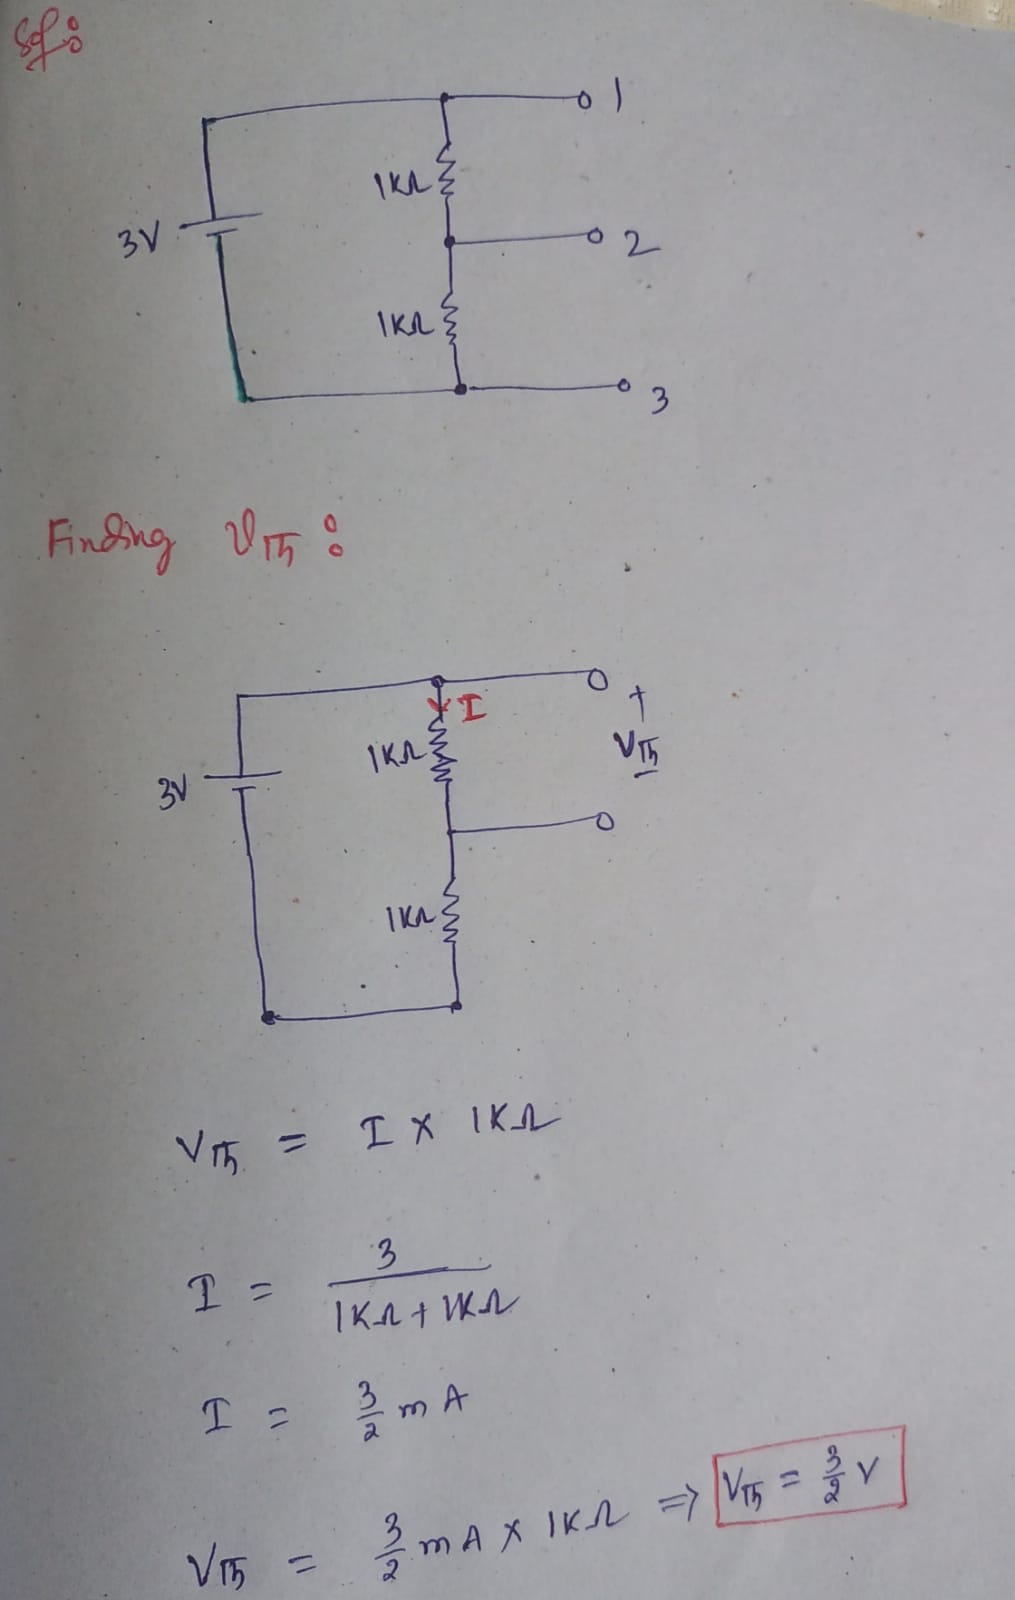 Sol:
1
1KΩ
3V
2
1KΩ
3
Finding VTh :
I
+
1KΩ
VTh
3V
-
1KΩ
VTh = I × 1KΩ
I = 3 / 1KΩ + 1KΩ
I = 3/2 mA
VTh = 3/2 mA × 1KΩ ⇒ VTh = 3/2 V